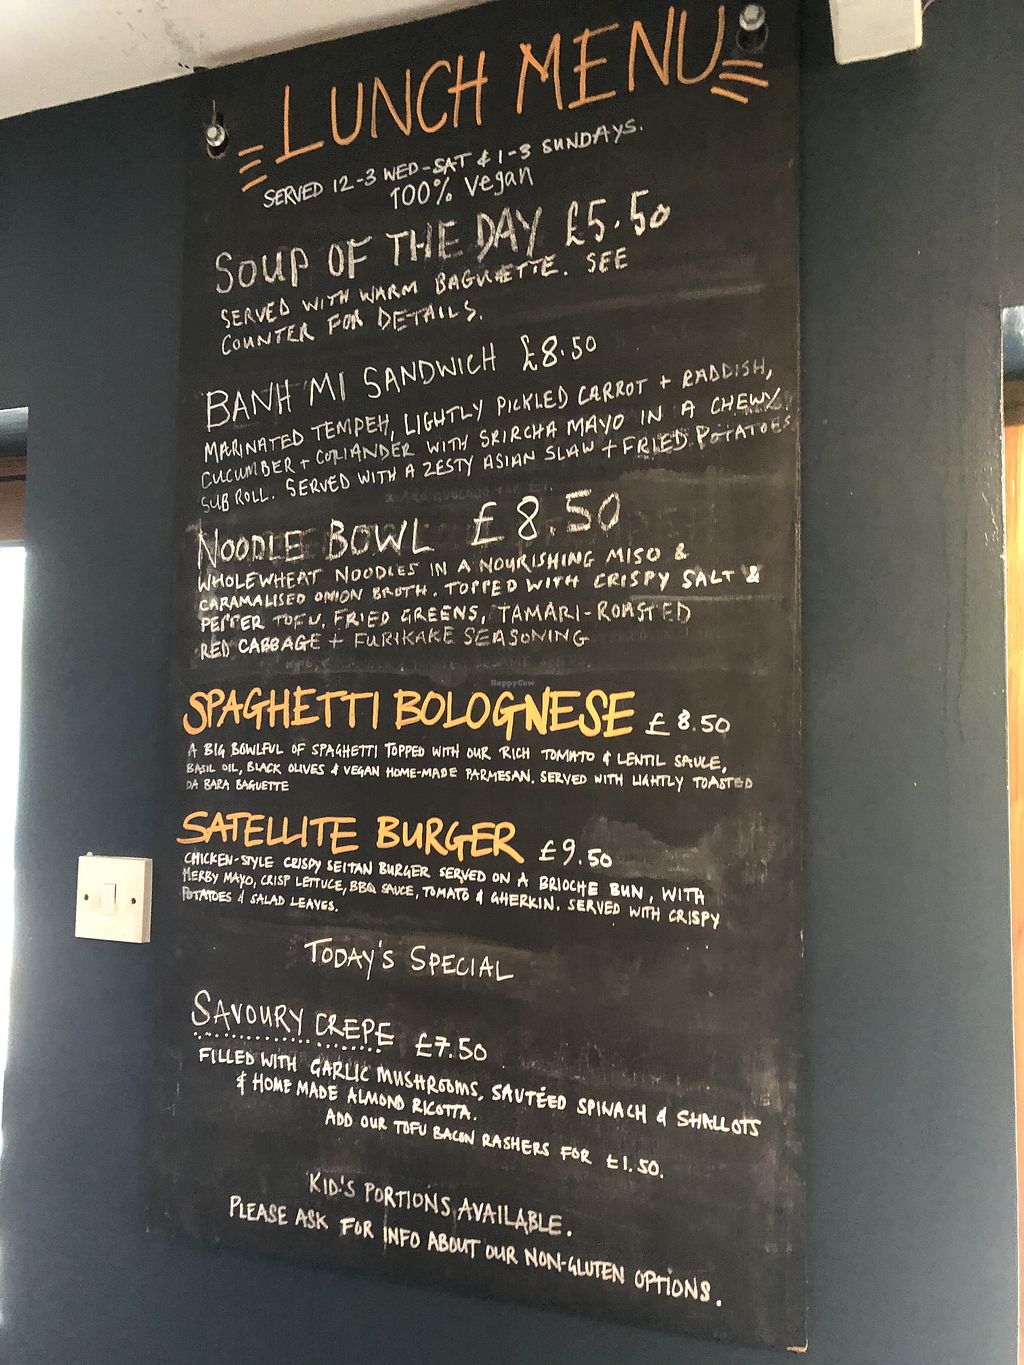 LUNCH MENU
SERVED 12-3 WED-SAT & 1-3 SUNDAYS.
100% vegan
SOUP OF THE DAY £5.50
SERVED WITH WARM BAGUETTE. SEE
COUNTER FOR DETAILS.
BANH MI SANDWICH £8.50
MARINATED TEMPEH, LIGHTLY PICKLED CARROT + RADDISH,
CUCUMBER + CORIANDER WITH SRIRCHA MAYO IN A CHEWY
SUB ROLL. SERVED WITH A ZESTY ASIAN SLAW + FRIED POTATOES
NOODLE BOWL £8.50
WHOLEWHEAT NOODLES IN A NOURISHING MISO &
CARAMALISED ONION BROTH. TOPPED WITH CRISPY SALT &
PEPPER TOFU, FRIED GREENS, TAMARI-ROASTED
RED CABBAGE + FURIKAKE SEASONING
HappyCow
SPAGHETTI BOLOGNESE £8.50
A BIG BOWLFUL OF SPAGHETTI TOPPED WITH OUR RICH TOMATO & LENTIL SAUCE,
BASIL OIL, BLACK OLIVES & VEGAN HOME-MADE PARMESAN. SERVED WITH LIGHTLY TOASTED
DA BARA BAGUETTE
SATELLITE BURGER £9.50
CHICKEN-STYLE CRISPY SEITAN BURGER SERVED ON A BRIOCHE BUN, WITH
HERBY MAYO, CRISP LETTUCE, BBQ SAUCE, TOMATO & GHERKIN. SERVED WITH CRISPY
POTATOES & SALAD LEAVES.
TODAY'S SPECIAL
SAVOURY CREPE £7.50
FILLED WITH GARLIC MUSHROOMS, SAUTÉED SPINACH & SHALLOTS
& HOME MADE ALMOND RICOTTA.
ADD OUR TOFU BACON RASHERS FOR £1.50.
KID'S PORTIONS AVAILABLE.
PLEASE ASK FOR INFO ABOUT OUR NON-GLUTEN OPTIONS.